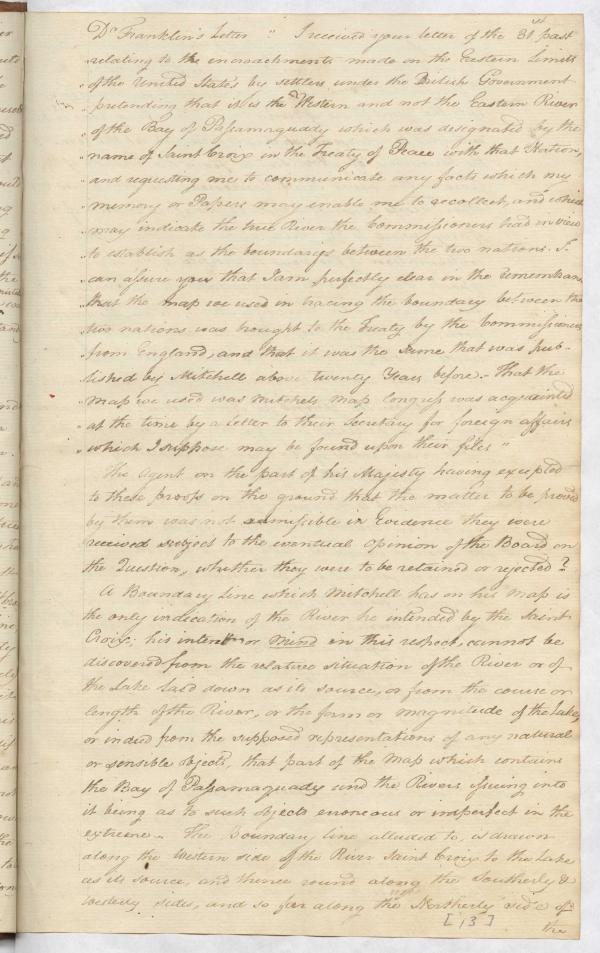 Dr Franklin's Letter " I received your letter of the 31st past
" relating to the encroachments made on the Eastern Limits
" of the United States by settlers under the British Government
" pretending that it is the Western and not the Eastern River
" of the Bay of Passamaquady which was designated by the
" name of Saint Croix in the Treaty of Peace with that Nation,
" and requesting me to communicate any facts which my
" memory or Papers may enable me to recollect, and which
" may indicate the true River the Commissioners had in view
" to establish as the boundaries between the two nations. I
" can assure you that I am perfectly clear in the remembrance
" that the map we used in tracing the boundary between the
" two nations was brought to the Treaty by the Commissioners
" from England, and that it was the same that was pub-
" lished by Mitchell above twenty Years before. That the
" Map we used was Mitchels Map Congress was acquainted
" at the time by a Letter to their Secretary for foreign affairs
" which I suppose may be found upon their files "
The Agent on the part of his Majesty having excepted
to these proofs on the ground that the matter to be proved
by them was not admissible in Evidence they were
received subject to the eventual opinion of the Board on
the Question, whether they were to be retained or rejected?
A Boundary Line which Mitchell has on his Map is
the only indication of the River he intended by the Saint
Croix; his intent or mind in this respect, cannot be
discovered from the relative situation of the River or of
the Lake laid down as its source, or from the course or
length of the River, or the form or magnitude of the Lake,
or indeed from the supposed representations of any natural
or sensible objects, that part of the Map which contains
the Bay of Passamaquady and the Rivers issuing into
it being as to such objects erroneous or imperfect in the
extreme. The boundary line alluded to, is drawn
along the Western side of the River Saint Croix to the Lake
as its source, and thence round along the Southerly &
Westerly sides, and so far along the Northerly side of
[13]
the